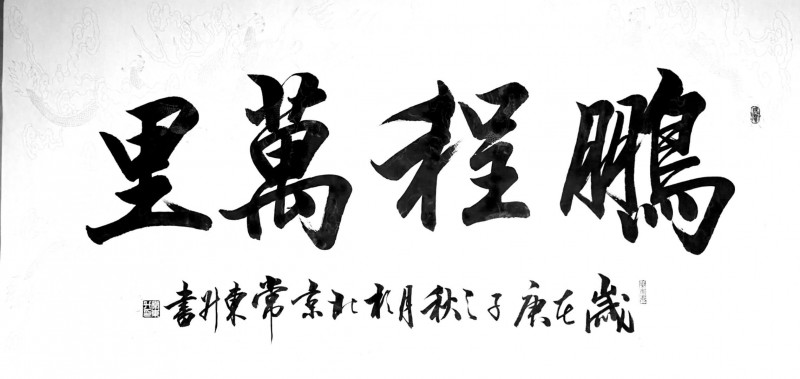 鵬程萬里
歲在庚子之秋月於北京常東升書